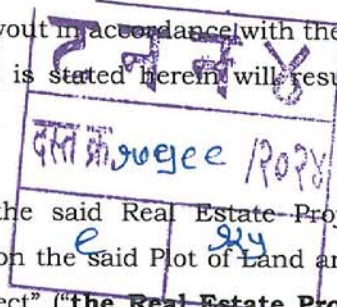 yout in accordance with the
ट न न ४
is stated herein will resu
दस्त क्र. /२०२४
the said Real Estate Pro
on the said Plot of Land an
ect" ("the Real Estate Pro